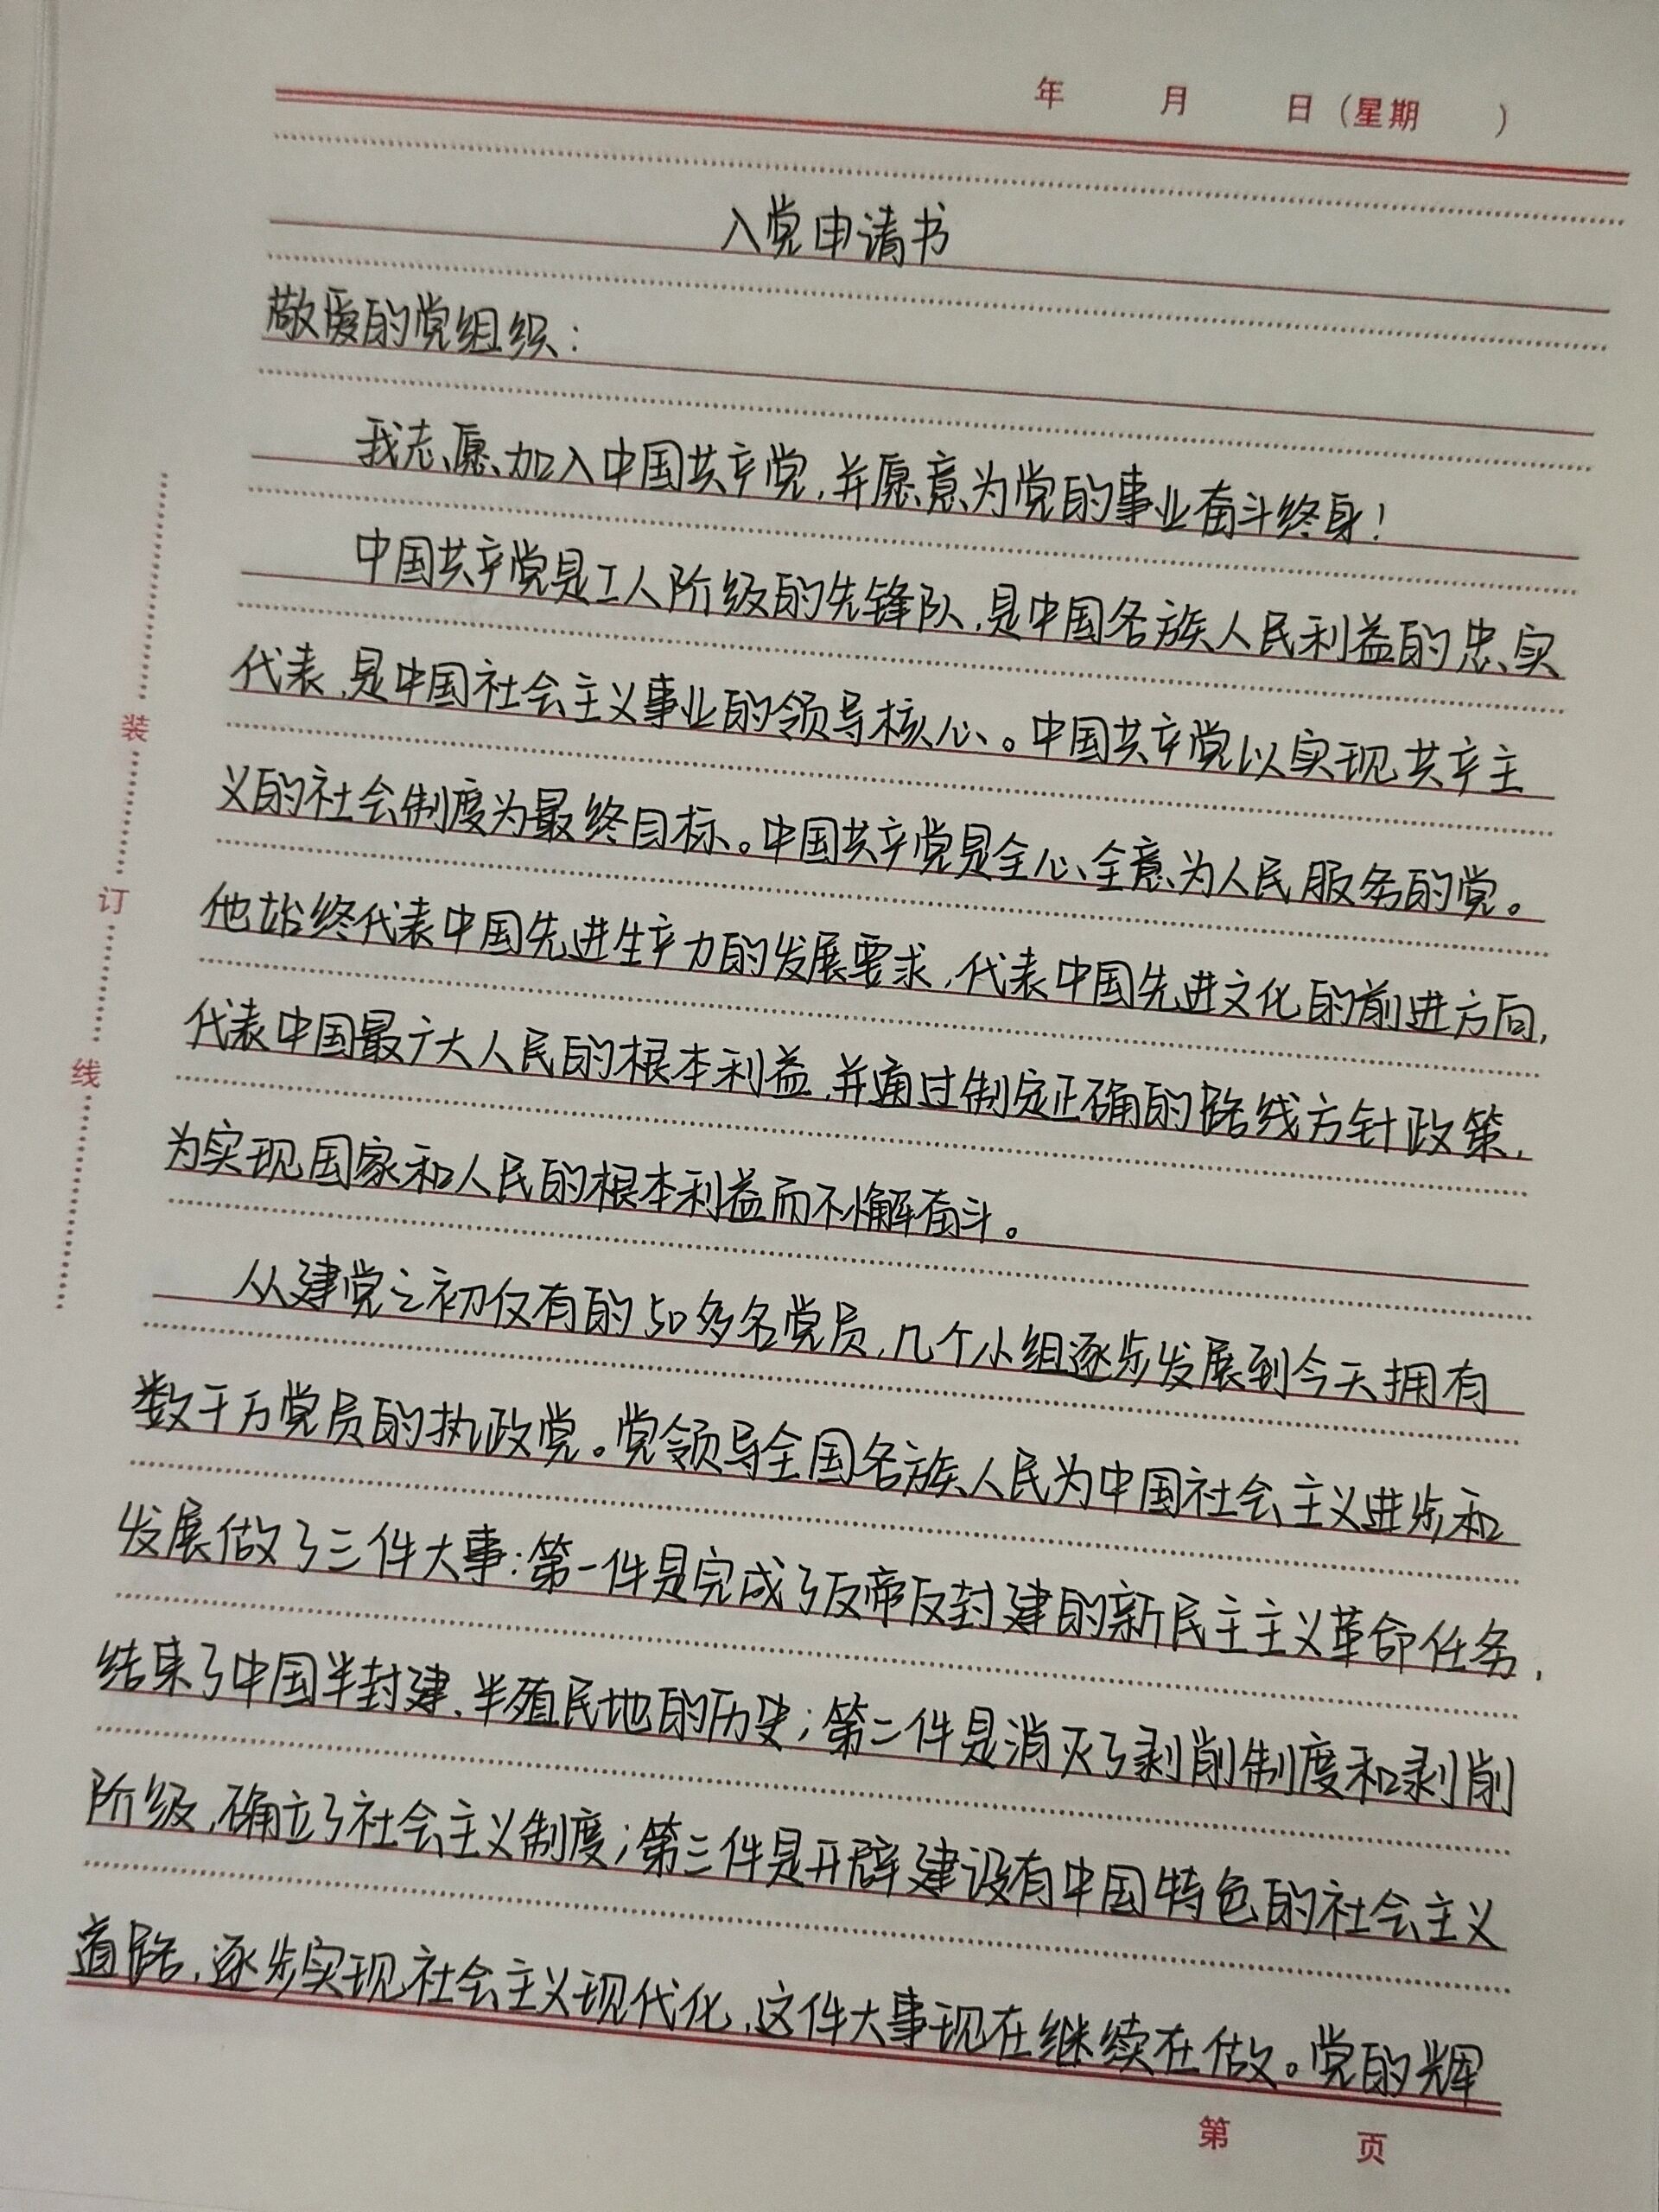 年 月 日（星期 ）
入党申请书
敬爱的党组织：
我志愿加入中国共产党,并愿意为党的事业奋斗终身!
中国共产党是工人阶级的先锋队,是中国各族人民利益的忠实
代表,是中国社会主义事业的领导核心。中国共产党以实现共产主
义的社会制度为最终目标。中国共产党是全心全意为人民服务的党。
他始终代表中国先进生产力的发展要求,代表中国先进文化的前进方向,
代表中国最广大人民的根本利益,并通过制定正确的路线方针政策,
为实现国家和人民的根本利益而不懈奋斗。
从建党之初仅有的50多名党员,几个小组逐步发展到今天拥有
数千万党员的执政党。党领导全国各族人民为中国社会主义进步和
发展做了三件大事:第一件是完成了反帝反封建的新民主主义革命任务,
结束了中国半封建、半殖民地的历史;第二件是消灭了剥削制度和剥削
阶级,确立了社会主义制度;第三件是开辟建设有中国特色的社会主义
道路,逐步实现社会主义现代化,这件大事现在继续在做。党的辉
装
订
线
第 页